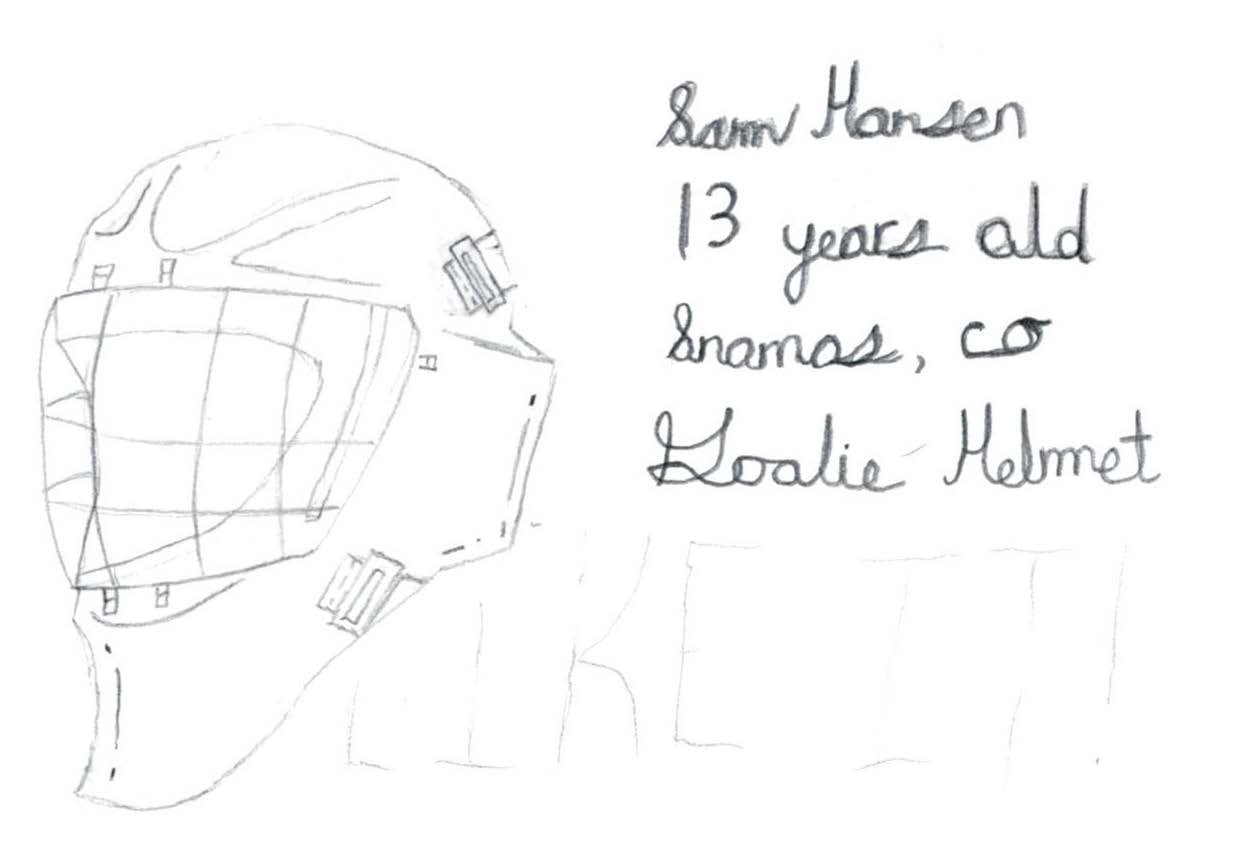 Sam Hansen
13 years old
Snamas, CO
Goalie Helmet
LIKE IT!